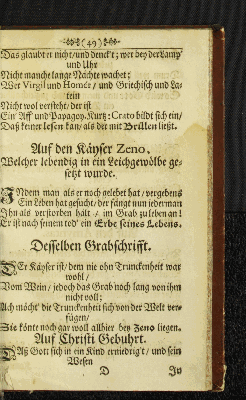 (49)
Das glaubt er nicht/ und denckt; wer bey der Lamp'
und Uhr
Nicht manche lange Nächte wachet;
Wer Virgil und Homér/ und Griechisch und La-
tein
Nicht wol verstehe/ der ist
Ein Aff und Papagoy. Kurtz: Crato bildt sich ein/
Daß keiner lesen kan/ als der mit Brillen ließt.
Auf den Käyser Zeno.
Welcher lebendig in ein Leichgewölbe ge-
setzt wurde.
INdem man als er noch gelebet hat/ vergebens
Ein Leben hat gesucht/ der fängt nun iederman
Ihn als verstorben hält/ im Grab zu leben an!
Er ist nach seinem tod' ein Erbe seines Lebens.
Desselben Grabschrifft.
DEr Käyser ist/ dem nie ohn Trunckenheit war
wohl/
Vom Wein/ jedoch das Grab noch lang von ihm
nicht voll;
Ach möcht' die Trunckenheit sich von der Welt ver-
fügen/
Sie könte noch gar woll allhier bey Zeno liegen.
Auf Christi Gebuhrt.
DAß Gott sich in ein Kind erniedrigt/ und sein
Wesen
D